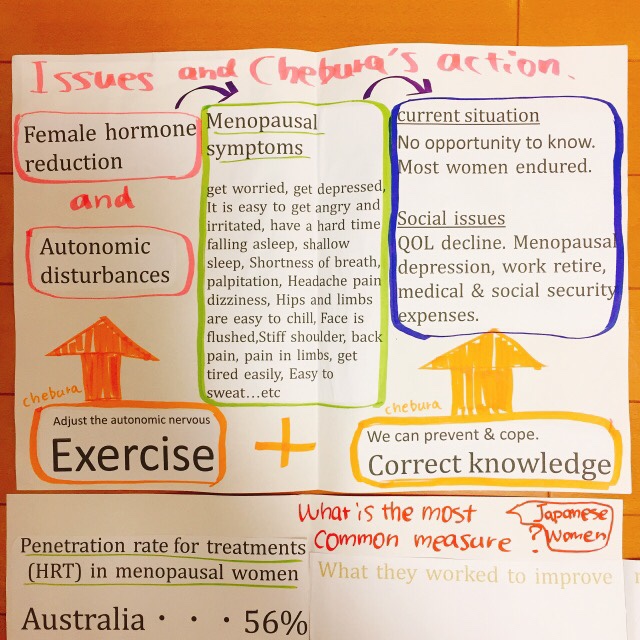 Issues and Chebura's action.
Female hormone
reduction
and
Autonomic
disturbances
Menopausal
symptoms
get worried, get depressed,
It is easy to get angry and
irritated, have a hard time
falling asleep, shallow
sleep, Shortness of breath,
palpitation, Headache pain
dizziness, Hips and limbs
are easy to chill, Face is
flushed,Stiff shoulder, back
pain, pain in limbs, get
tired easily, Easy to
sweat...etc
current situation
No opportunity to know.
Most women endured.
Social issues
QOL decline. Menopausal
depression, work retire,
medical & social security
expenses.
chebura
Adjust the autonomic nervous
Exercise
+
chebura
We can prevent & cope.
Correct knowledge
What is the most
common measure?
Japanese
Women
Penetration rate for treatments
(HRT) in menopausal women
Australia・・・56%
What they worked to improve